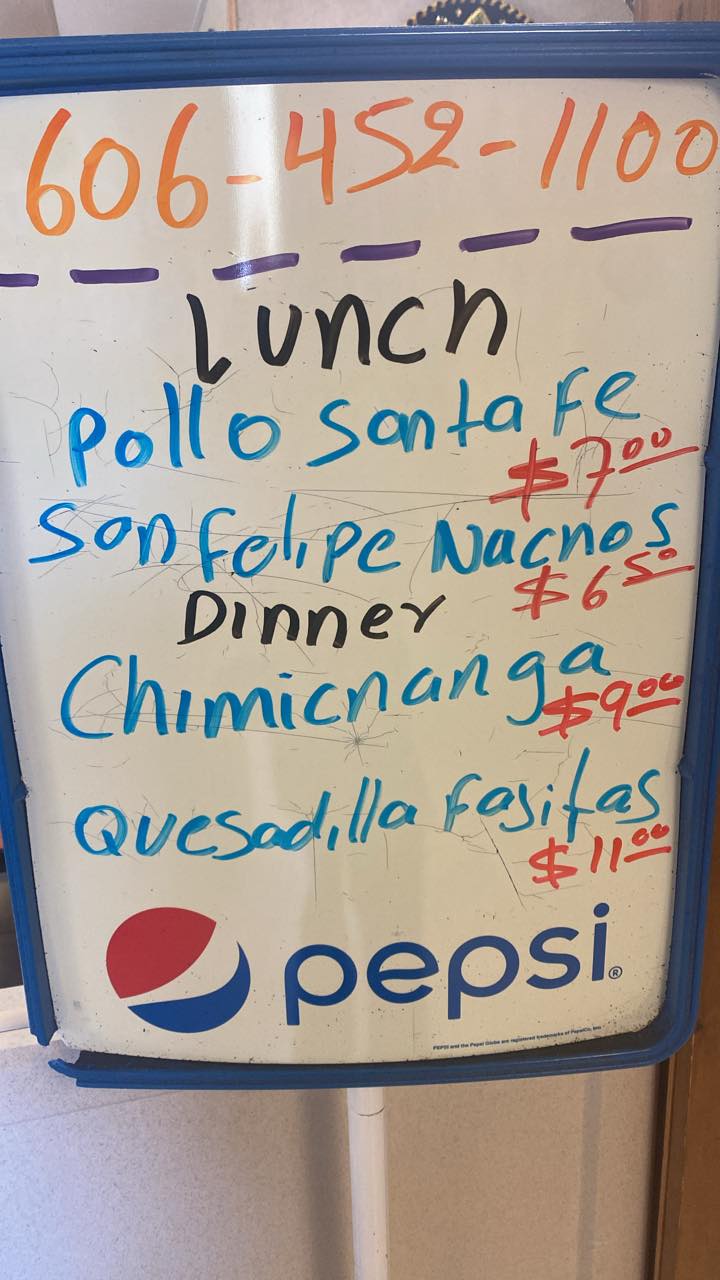 606-452-1100
Lunch
Pollo Santa Fe
$7.00
San Felipe Nachos
$6.50
Dinner
Chimichanga
$9.00
Quesadilla Fajitas
$11.00
pepsi®
PEPSI and the Pepsi Globe are registered trademarks of PepsiCo, Inc.